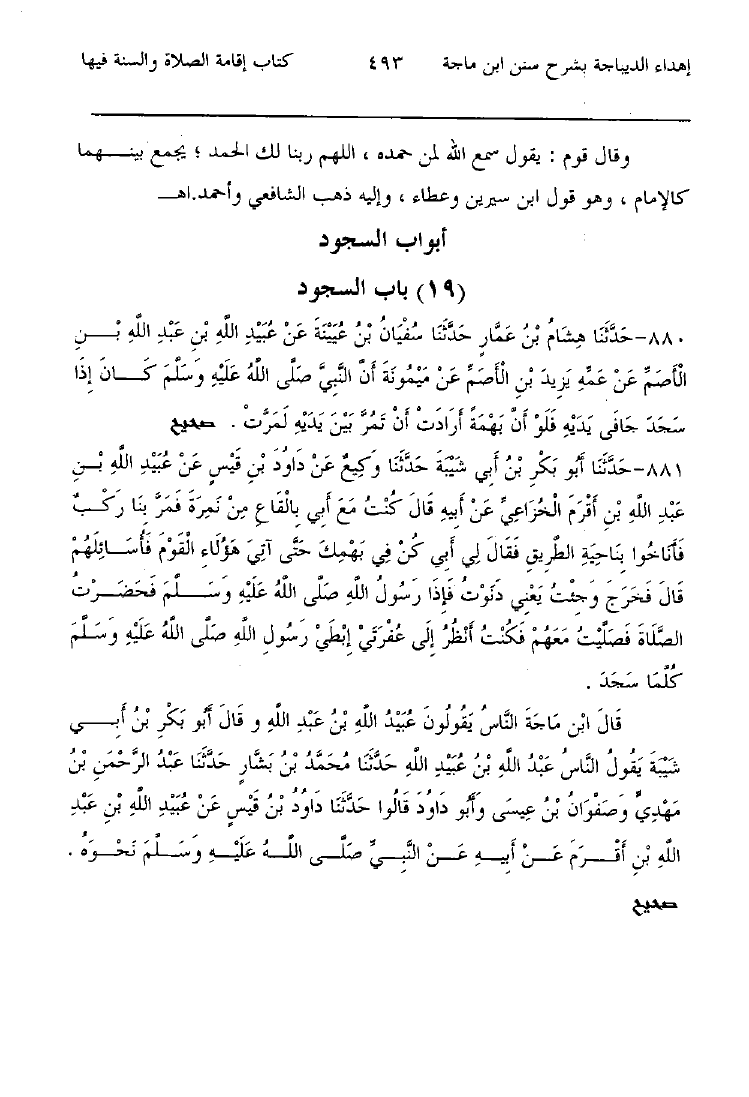 إهداء الديباجة بشرح سنن ابن ماجة ٤٩٣ كتاب إقامة الصلاة والسنة فيها
وقال قوم : يقول سمع الله لمن حمده ، اللهم ربنا لك الحمد ؛ يجمع بينهما
كالإمام ، وهو قول ابن سيرين وعطاء ، وإليه ذهب الشافعي وأحمد.اهـ
أبواب السجود
(١٩) باب السجود
٨٨٠-حَدَّثَنَا هِشَامُ بْنُ عَمَّارٍ حَدَّثَنَا سُفْيَانُ بْنُ عُيَيْنَةَ عَنْ عُبَيْدِ اللَّهِ بْنِ عَبْدِ اللَّهِ بْنِ
الْأَصَمِّ عَنْ عَمِّهِ يَزِيدَ بْنِ الْأَصَمِّ عَنْ مَيْمُونَةَ أَنَّ النَّبِيَّ صَلَّى اللَّهُ عَلَيْهِ وَسَلَّمَ كَانَ إِذَا
سَجَدَ جَافَى يَدَيْهِ فَلَوْ أَنَّ بَهْمَةً أَرَادَتْ أَنْ تَمُرَّ بَيْنَ يَدَيْهِ لَمَرَّتْ . صحيح
٨٨١-حَدَّثَنَا أَبُو بَكْرِ بْنُ أَبِي شَيْبَةَ حَدَّثَنَا وَكِيعٌ عَنْ دَاوُدَ بْنِ قَيْسٍ عَنْ عُبَيْدِ اللَّهِ بْنِ
عَبْدِ اللَّهِ بْنِ أَقْرَمَ الْخُزَاعِيِّ عَنْ أَبِيهِ قَالَ كُنْتُ مَعَ أَبِي بِالْقَاعِ مِنْ نَمِرَةَ فَمَرَّ بِنَا رَكْبٌ
فَأَنَاخُوا بِنَاحِيَةِ الطَّرِيقِ فَقَالَ لِي أَبِي كُنْ فِي بَهْمِكَ حَتَّى آتِيَ هَؤُلَاءِ الْقَوْمَ فَأُسَائِلَهُمْ
قَالَ فَخَرَجَ وَجِئْتُ يَعْنِي دَنَوْتُ فَإِذَا رَسُولُ اللَّهِ صَلَّى اللَّهُ عَلَيْهِ وَسَلَّمَ فَحَضَرْتُ
الصَّلَاةَ فَصَلَّيْتُ مَعَهُمْ فَكُنْتُ أَنْظُرُ إِلَى عُفْرَتَيْ إِبْطَيْ رَسُولِ اللَّهِ صَلَّى اللَّهُ عَلَيْهِ وَسَلَّمَ
كُلَّمَا سَجَدَ .
قَالَ ابْن مَاجَةَ النَّاسُ يَقُولُونَ عُبَيْدُ اللَّهِ بْنُ عَبْدِ اللَّهِ و قَالَ أَبُو بَكْرِ بْنُ أَبِي
شَيْبَةَ يَقُولُ النَّاسُ عَبْدُ اللَّهِ بْنُ عُبَيْدِ اللَّهِ حَدَّثَنَا مُحَمَّدُ بْنُ بَشَّارٍ حَدَّثَنَا عَبْدُ الرَّحْمَنِ بْنُ
مَهْدِيٍّ وَصَفْوَانُ بْنُ عِيسَى وَأَبُو دَاوُدَ قَالُوا حَدَّثَنَا دَاوُدُ بْنُ قَيْسٍ عَنْ عُبَيْدِ اللَّهِ بْنِ عَبْدِ
اللَّهِ بْنِ أَقْرَمَ عَنْ أَبِيهِ عَنْ النَّبِيِّ صَلَّى اللَّهُ عَلَيْهِ وَسَلَّمَ نَحْوَهُ .
صحيح